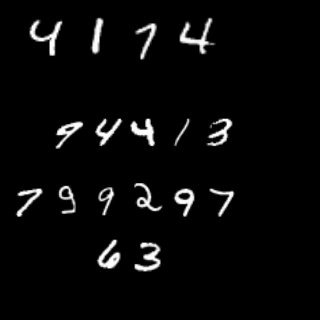 4174
94413
799297
63